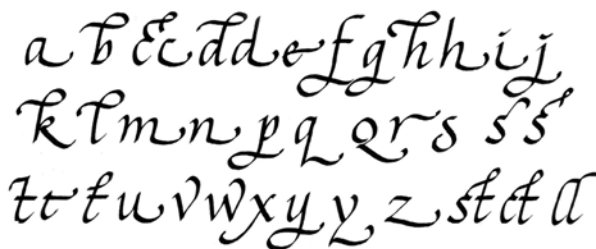 a b c c d d e f g h h i j
k l m n p q Q r s s s
t t t u v w x y y z st ct ll